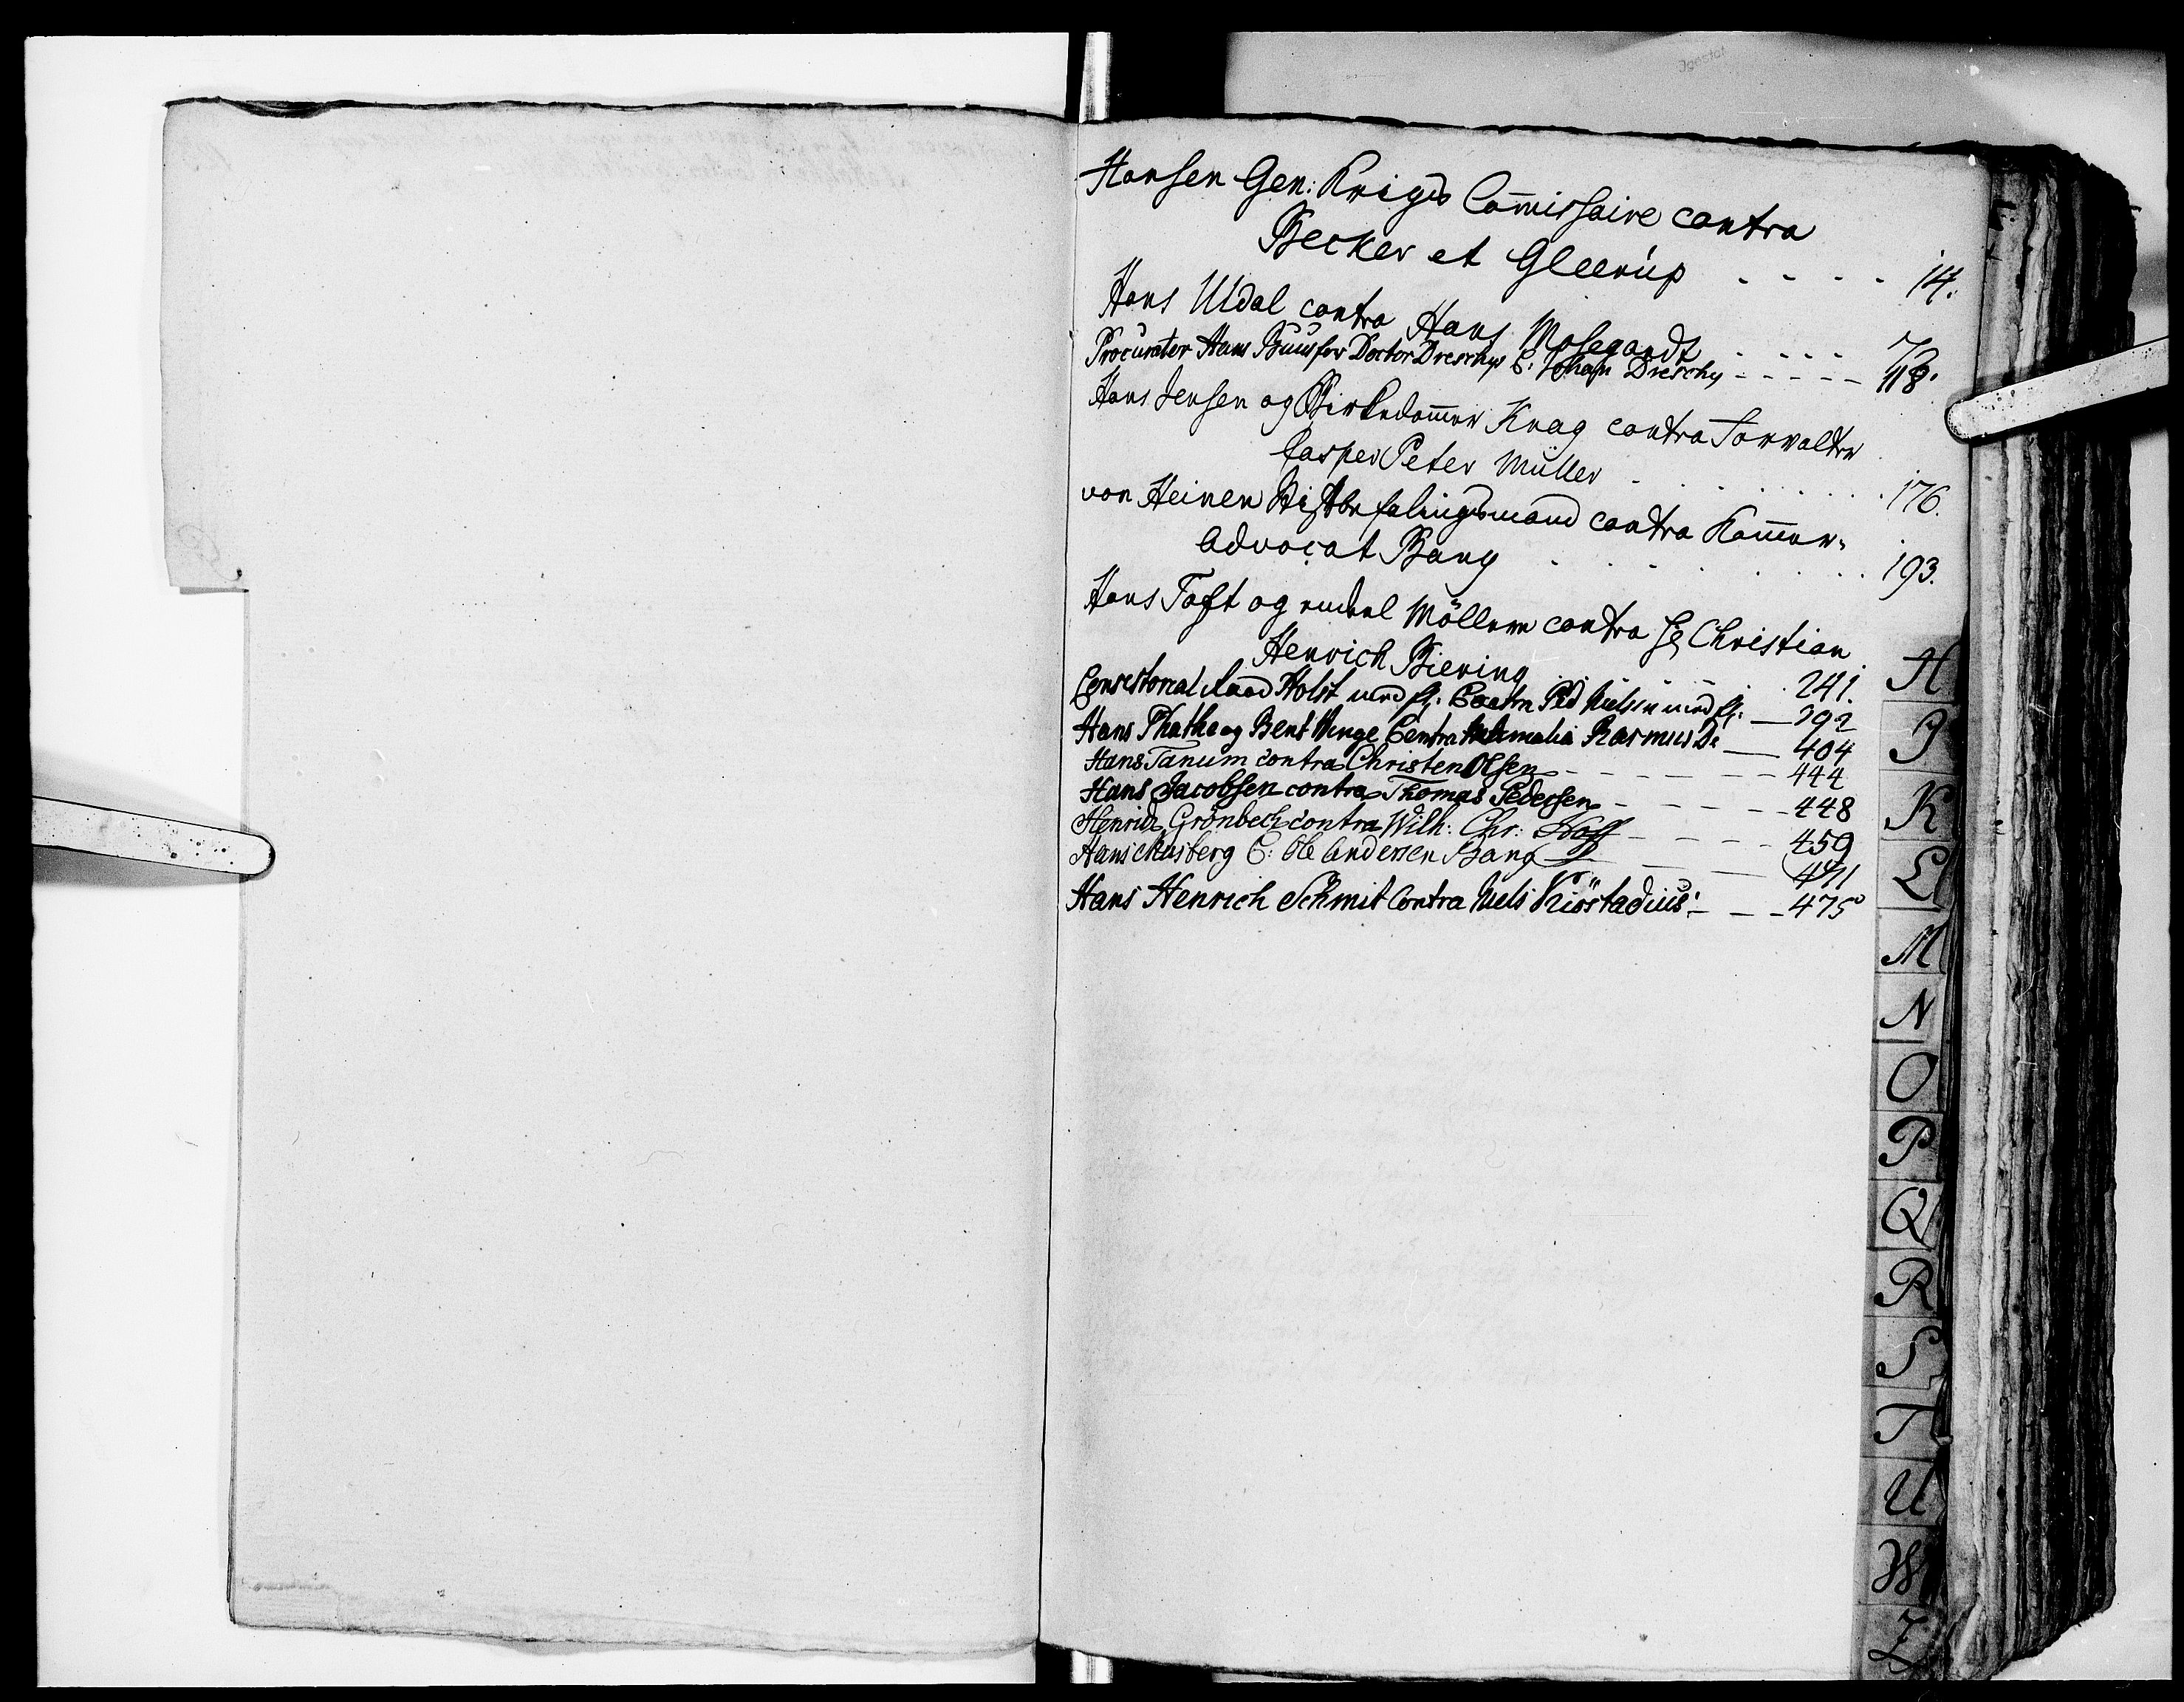 Hansen Gen: Krigs Com̄issaire contra
Becker et Gleerup - - - - 14.
Hans Uldal contra Hans Molegardt - - - - 72.
Procurator Hans Buus for Doctor Dreschys C: Johan Dreschy - - - - - 118
Hans Jensen og Birkedom̄er Krag contra Forvalter
Casper Peter Müller . . . . . . 176.
von Heinen Stiftbefalingsmand contra Kam̄er-
Advocat Bang . . . . . . 193.
Hans Toft og Møllere contra Sr Christian
Henrich Biering . . . . 241.
Consistorial Raad Holst med fl: Contra Ped Nielsen med fl: — 392
Hans Thatke og Bent Winge Contra Amalia Rasmus Dr — 404
Hans Tanum contra Christen Olsen - - - - - - 444
Hans Jacobsen contra Thomas Pedersen - - - - 448
Henrich Grönbech contra Wilh: Chr: Hoff - - - - 459
Hans C: Ole Andersen Bang — — — 471
Hans Henrich Schmit Contra Niels - - - 475
H
I
K
L
M
N
O
P
Q
R
S
T
U
W
Z